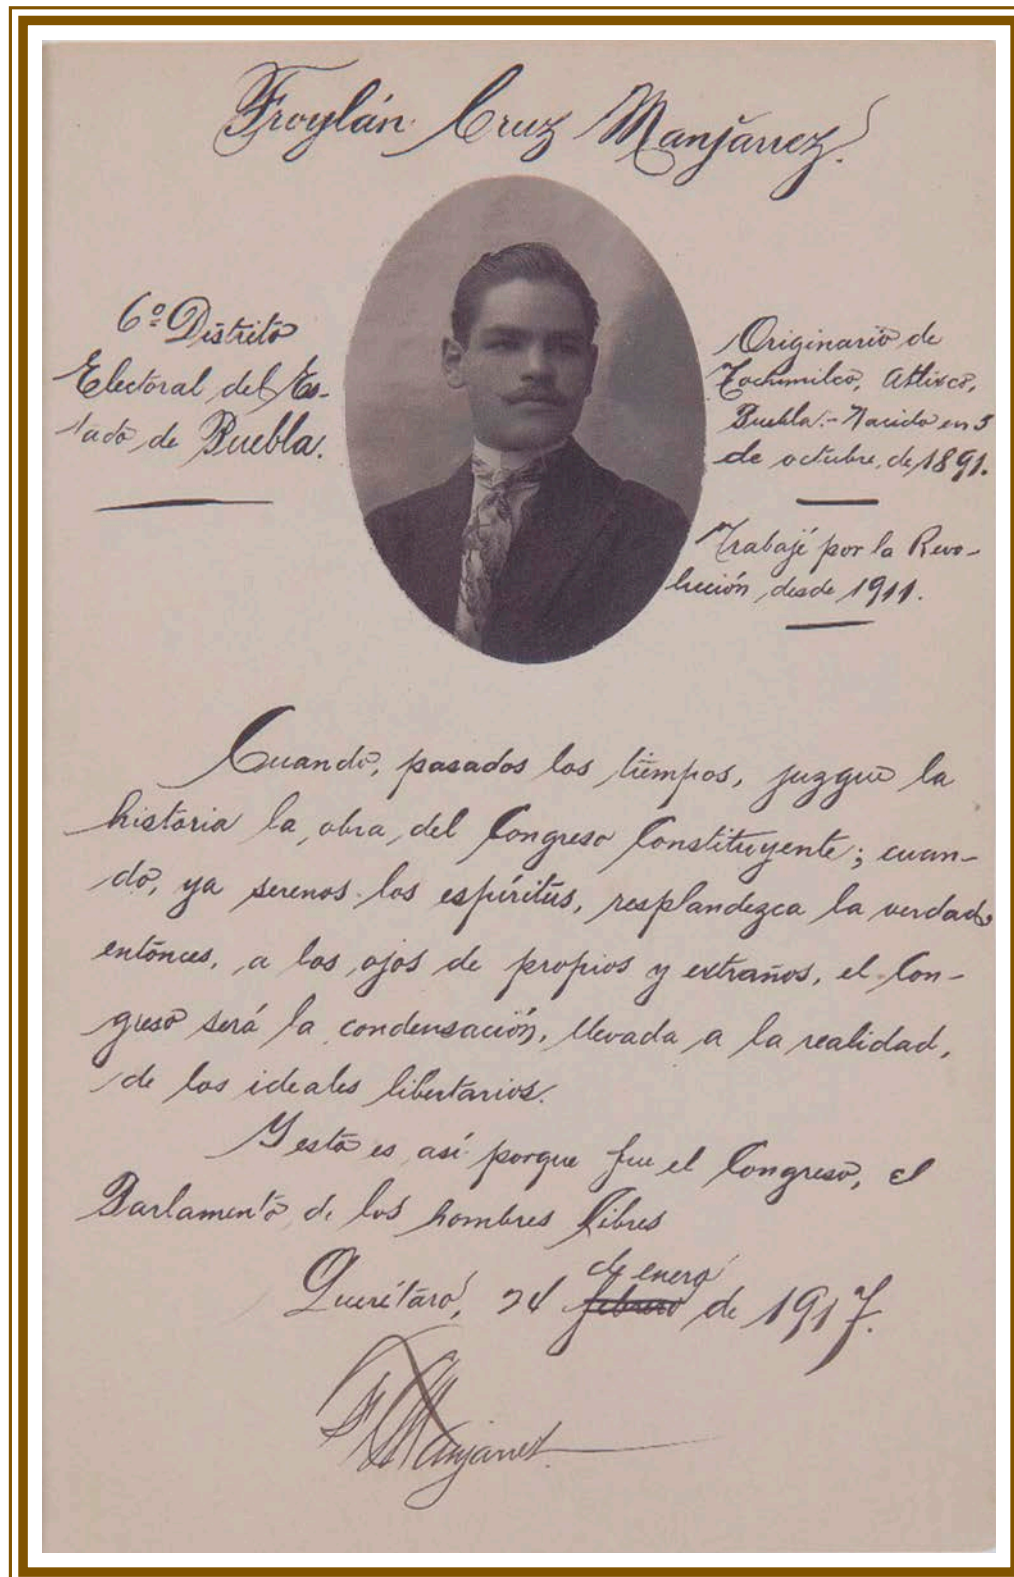 Froylán Cruz Manjarrez.
6º Distrito
Electoral del Es-
tado de Puebla.
Originario de
Tochimilco, Atlixco,
Puebla.- Nacido en 5
de octubre, de 1891.
Trabajé por la Revo-
lución, desde 1911.
Cuando, pasados los tiempos, juzgue la
historia la obra del Congreso Constituyente; cuan-
do, ya serenos los espíritus, resplandezca la verdad,
entónces, a los ojos de propios y extraños, el Con-
greso será la condensación, llevada a la realidad,
de los ideales libertarios.
Y esto es así porque fue el Congreso, el
Parlamento de los hombres libres
de enero
Querétaro, 24 febrero de 1917.
F. C. Manjarrez.